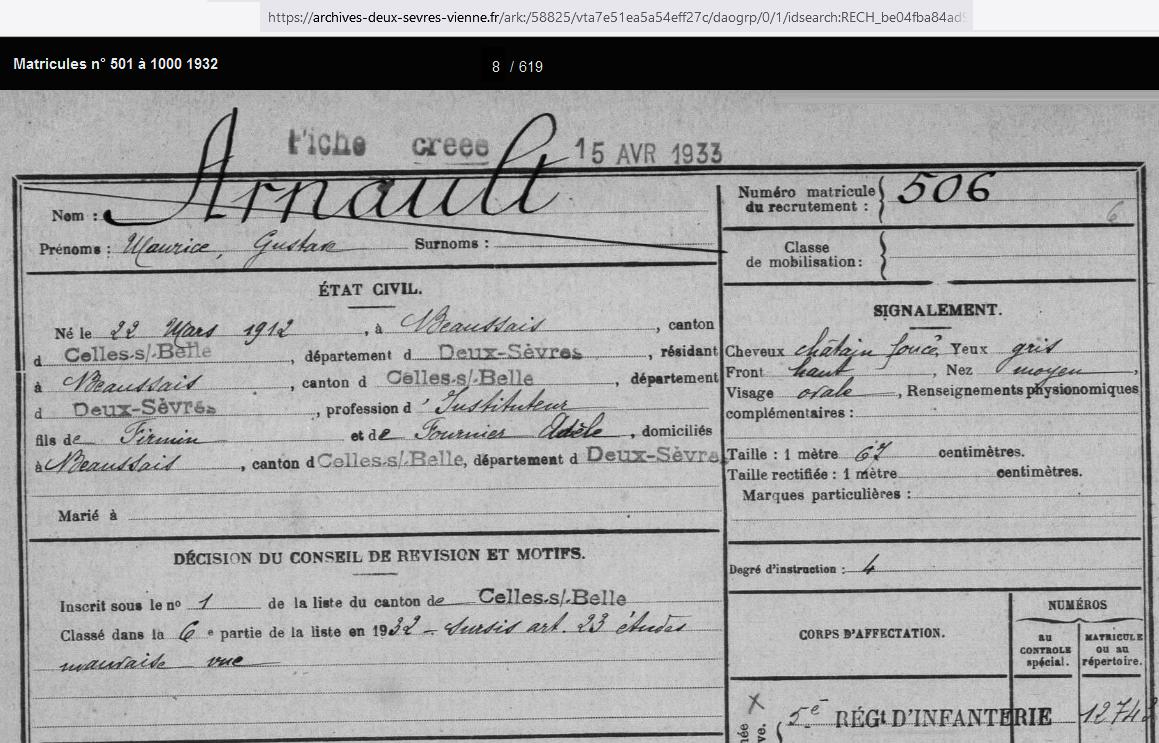 https://archives-deux-sevres-vienne.fr/ark:/58825/vta7e51ea5a54eff27c/daogrp/0/1/idsearch:RECH_be04fba84ad
Matricules n° 501 à 1000 1932
8 / 619
Fiche creee 15 AVR 1933
Nom : Arnault
Prénoms : Maurice, Gustave Surnoms :
ÉTAT CIVIL.
Né le 22 Mars 1912, à Beaussais, canton
d Celles-s/-Belle, département d Deux-Sèvres, résidant
à Beaussais, canton d Celles-s/-Belle, département
d Deux-Sèvres, profession d'Instituteur
fils de Firmin et de Fournier Adèle, domiciliés
à Beaussais, canton d Celles-s/-Belle, département d Deux-Sèvres
Marié à
DÉCISION DU CONSEIL DE REVISION ET MOTIFS.
Inscrit sous le n° 1 de la liste du canton de Celles-s/-Belle
Classé dans la 6e partie de la liste en 1932 - sursis art. 23 études
mauvaise vue
Numéro matricule
du recrutement : 506
6
Classe
de mobilisation :
SIGNALEMENT.
Cheveux châtain foncé, Yeux gris
Front haut, Nez moyen,
Visage ovale, Renseignements physionomiques
complémentaires :
Taille : 1 mètre 67 centimètres.
Taille rectifiée : 1 mètre centimètres.
Marques particulières :
Degré d'instruction : 4
CORPS D'AFFECTATION.
NUMÉROS
AU CONTROLE spécial.
MATRICULE ou au répertoire.
5e RÉGt D'INFANTERIE